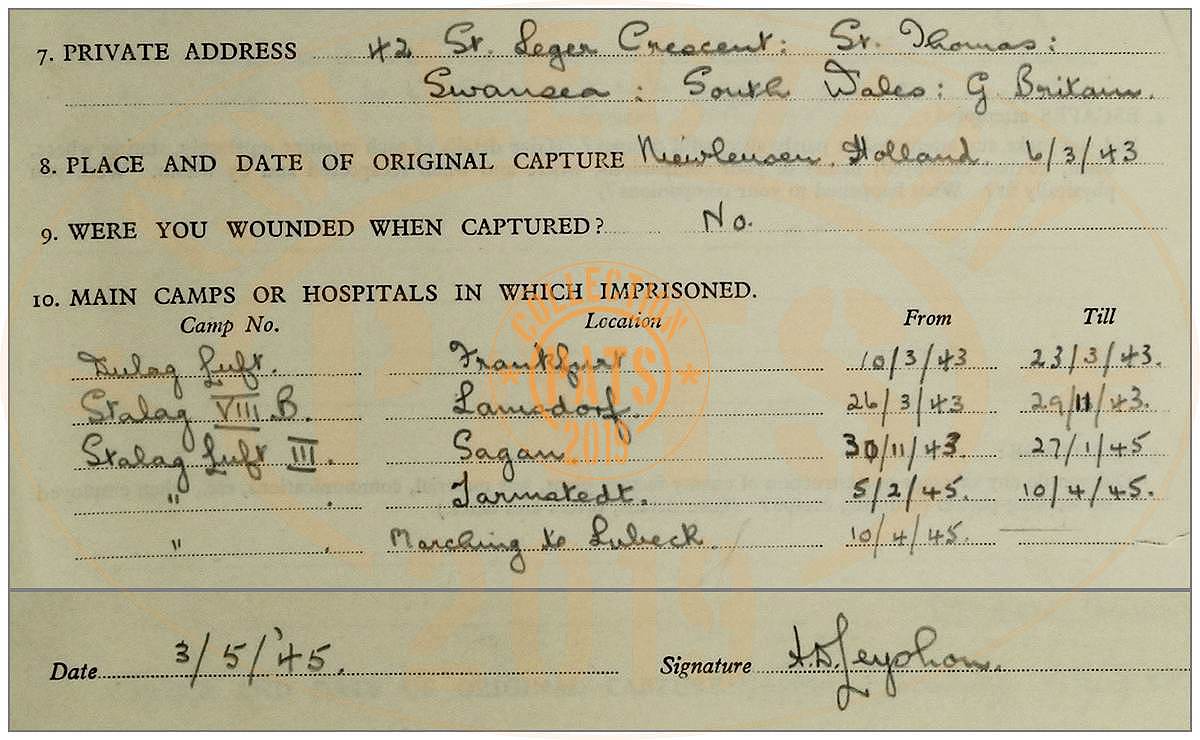 7. PRIVATE ADDRESS 42 St. Leger Crescent: St. Thomas:
Swansea: South Wales: G Britain.
8. PLACE AND DATE OF ORIGINAL CAPTURE Holland. 6/3/43
9. WERE YOU WOUNDED WHEN CAPTURED? No.
10. MAIN CAMPS OR HOSPITALS IN WHICH IMPRISONED.
Camp No. Location From Till
Dulag Luft. Frankfurt 10/3/43 23/3/43.
Stalag VIII.B. Lamsdorf. 26/3/43 29/11/43.
Stalag Luft III. Sagan 30/11/43. 27/1/45
" . Tarmstedt. 5/2/45. 10/4/45.
" . Marching to Lubeck. 10/4/45.
Date 3/5/'45. Signature A.D.
COLLECTION
PATS
2019